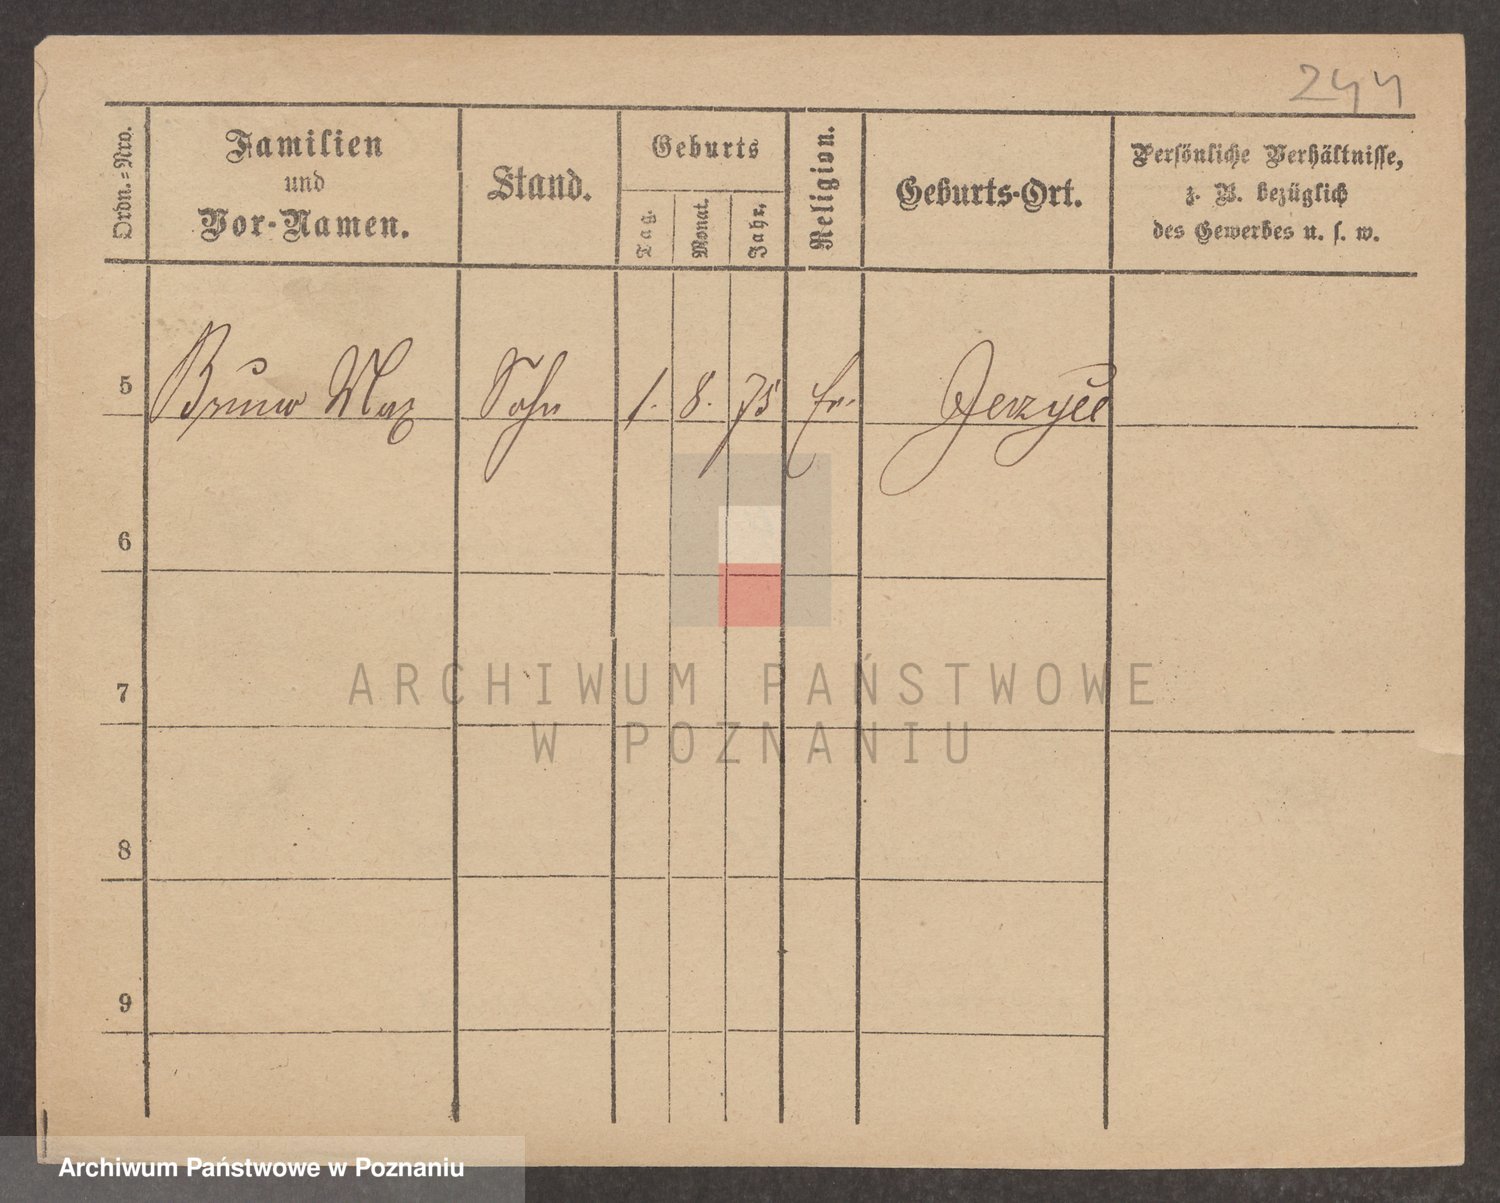 244
Ordn.=Nro.
Familien
und
Vor-Namen.
Stand.
Geburts
Tag.
Monat.
Jahr.
Religion.
Geburts-Ort.
Persönliche Verhältnisse,
z. B. bezüglich
des Gewerbes u. s. w.
5 Bruno Max Sohn 1. 8. 75 Ev. Jerzyce
6
7
8
9
ARCHIWUM PAŃSTWOWE
W POZNANIU
Archiwum Państwowe w Poznaniu